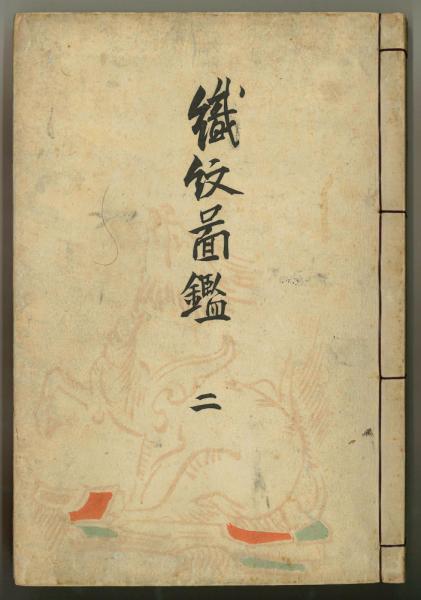 織紋啚鑑 二